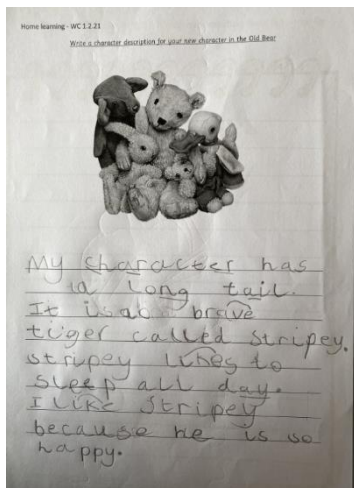 Home learning - WC 1.2.21
Write a character description for your new character in the Old Bear
My character has
a long tail.
It is a brave
tiger called stripey.
stripey likes to
sleep all day.
I like Stripey
because he is so
happy.